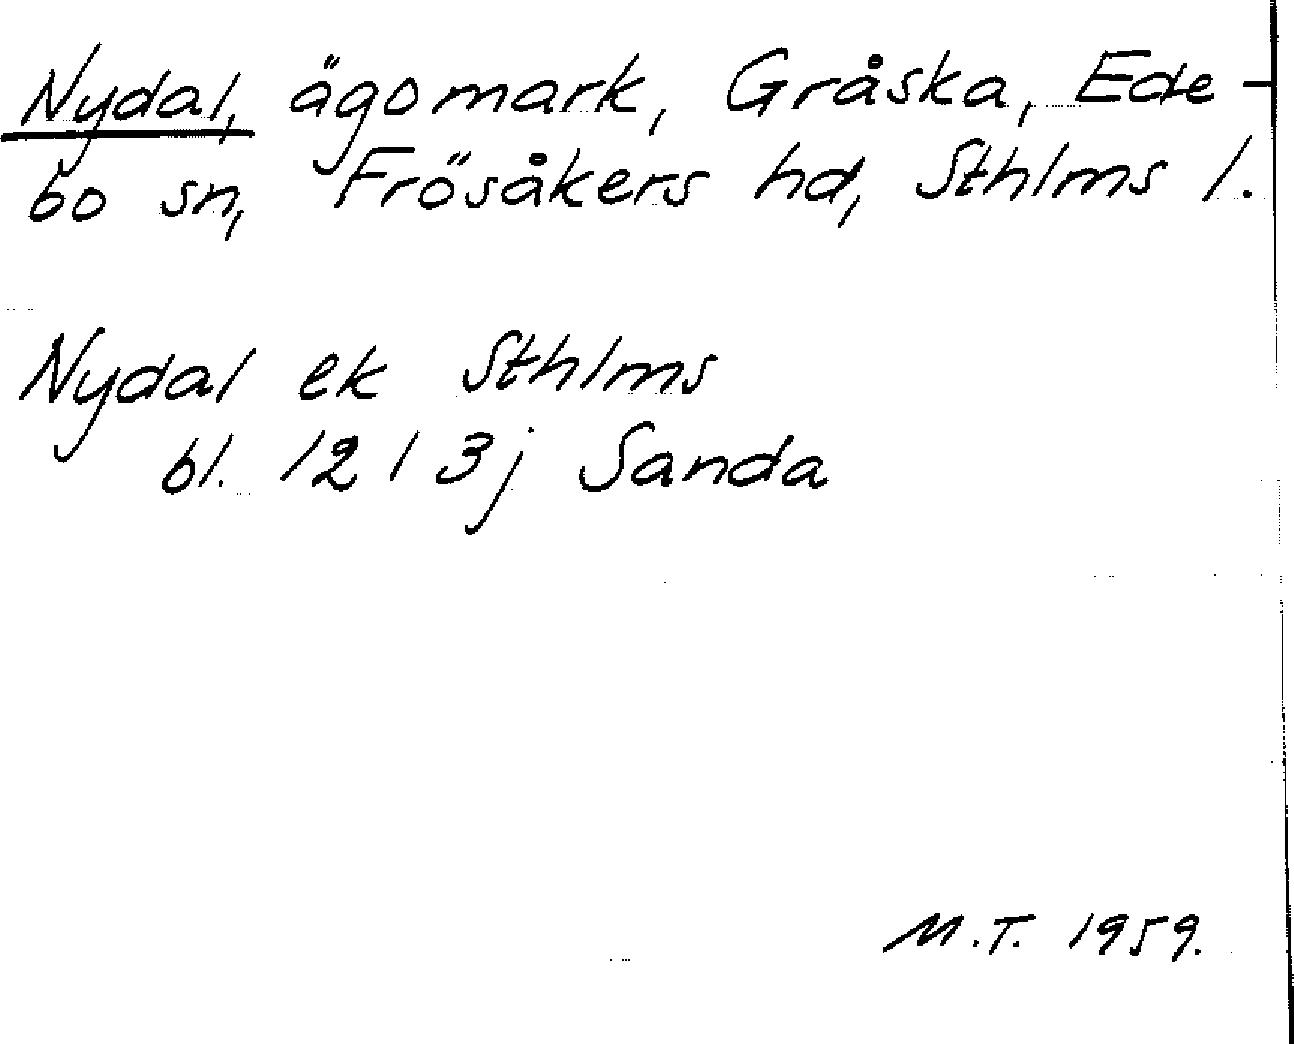 Nydal, ägomark, Gråska, Ede-
bo sn, Frösåkers hd, Sthlms l.
Nydal ek Sthlms
bl. 121 3j Sanda
M.T. 1959.